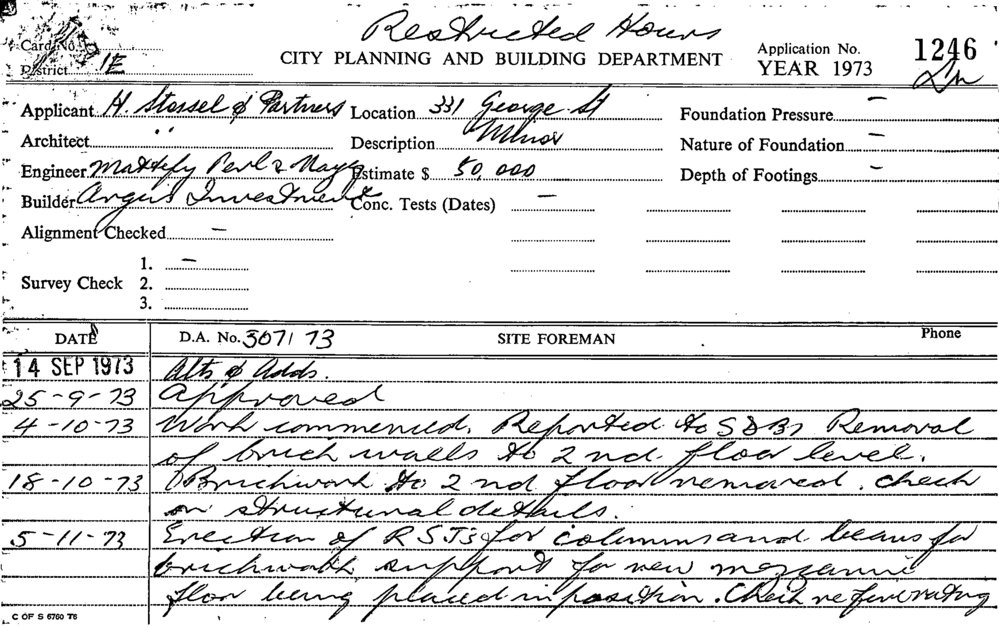 Restricted Hours
Card No.
CITY PLANNING AND BUILDING DEPARTMENT
Application No. 1246
YEAR 1973
District 1E
Applicant H. Stossel & Partners Location 331 George St Foundation Pressure —
Architect " Description Minor Nature of Foundation —
Engineer Perl & Estimate $ 50,000 Depth of Footings —
Builder Argus Investment Conc. Tests (Dates) —
Alignment Checked —
Survey Check 1. —
2.
3.
DATE D.A. No. 307/73 SITE FOREMAN Phone
14 SEP 1973 Alts & Adds.
25-9-73 Approved
4-10-73 Work commenced. Reported to SDBs Removal
of brick walls to 2nd. floor level.
18-10-73 Brickwork to 2nd floor removed. check
on structural details.
5-11-73 Erection of RSJs for columns and beams for
brickwork support for new mezzanine
floor being placed in position. Check re
C OF S 6760 T6